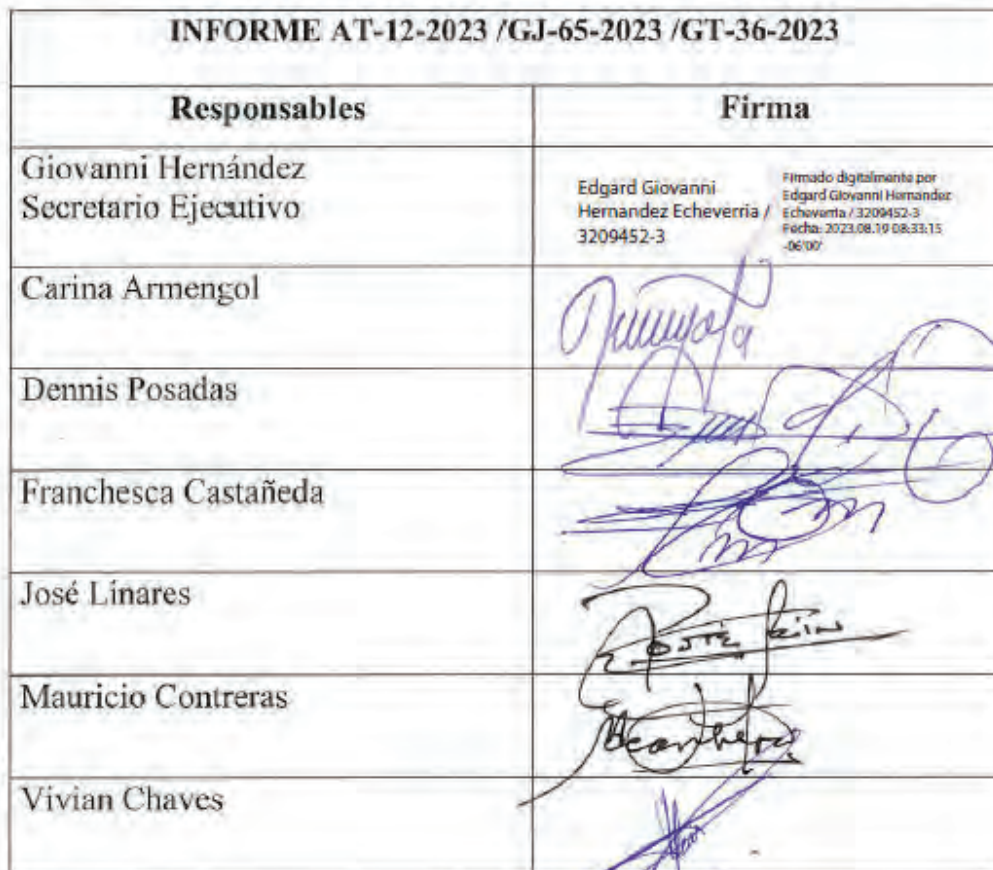 INFORME AT-12-2023 /GJ-65-2023 /GT-36-2023
Responsables
Firma
Giovanni Hernández
Secretario Ejecutivo
Edgard Giovanni
Hernandez Echeverria /
3209452-3
Firmado digitalmente por
Edgard Giovanni Hernandez
Echeverria / 3209452-3
Fecha: 2023.08.19 08:33:15
-06'00'
Carina Armengol
Dennis Posadas
Franchesca Castañeda
José Linares
Mauricio Contreras
Vivian Chaves